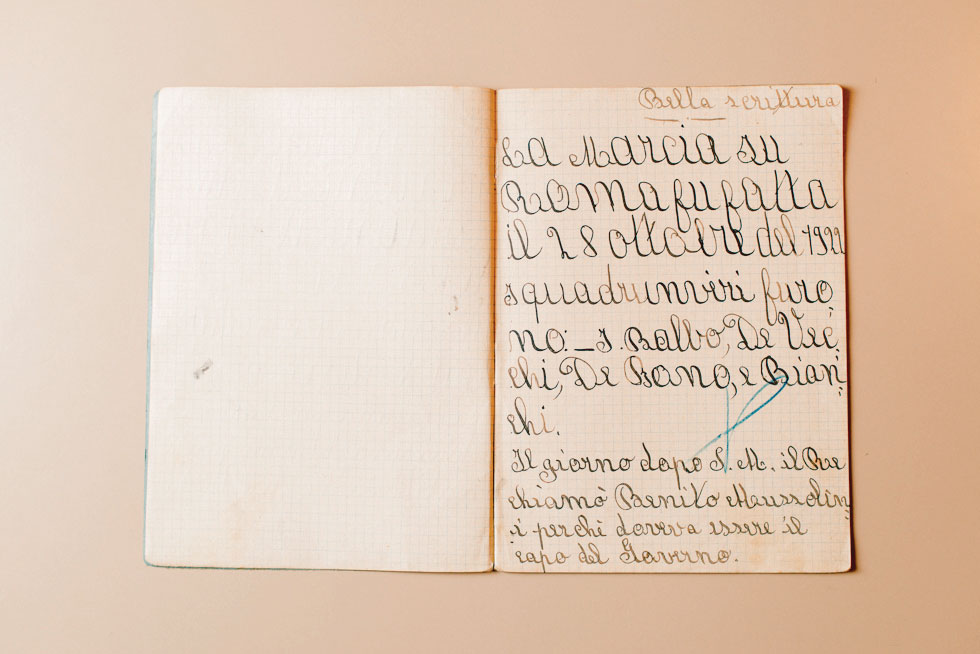 Bella scrittura
La Marcia su
Roma fu fatta
il 28 ottobre del 1922
I quadrunviri furo„
no: _ I. Balbo, De Vec„
chi, De Bono, e Bian„
chi.
Il giorno dopo S. M. il Re
chiamò Benito Mussolin„
i perchè doveva essere il
capo del Governo.